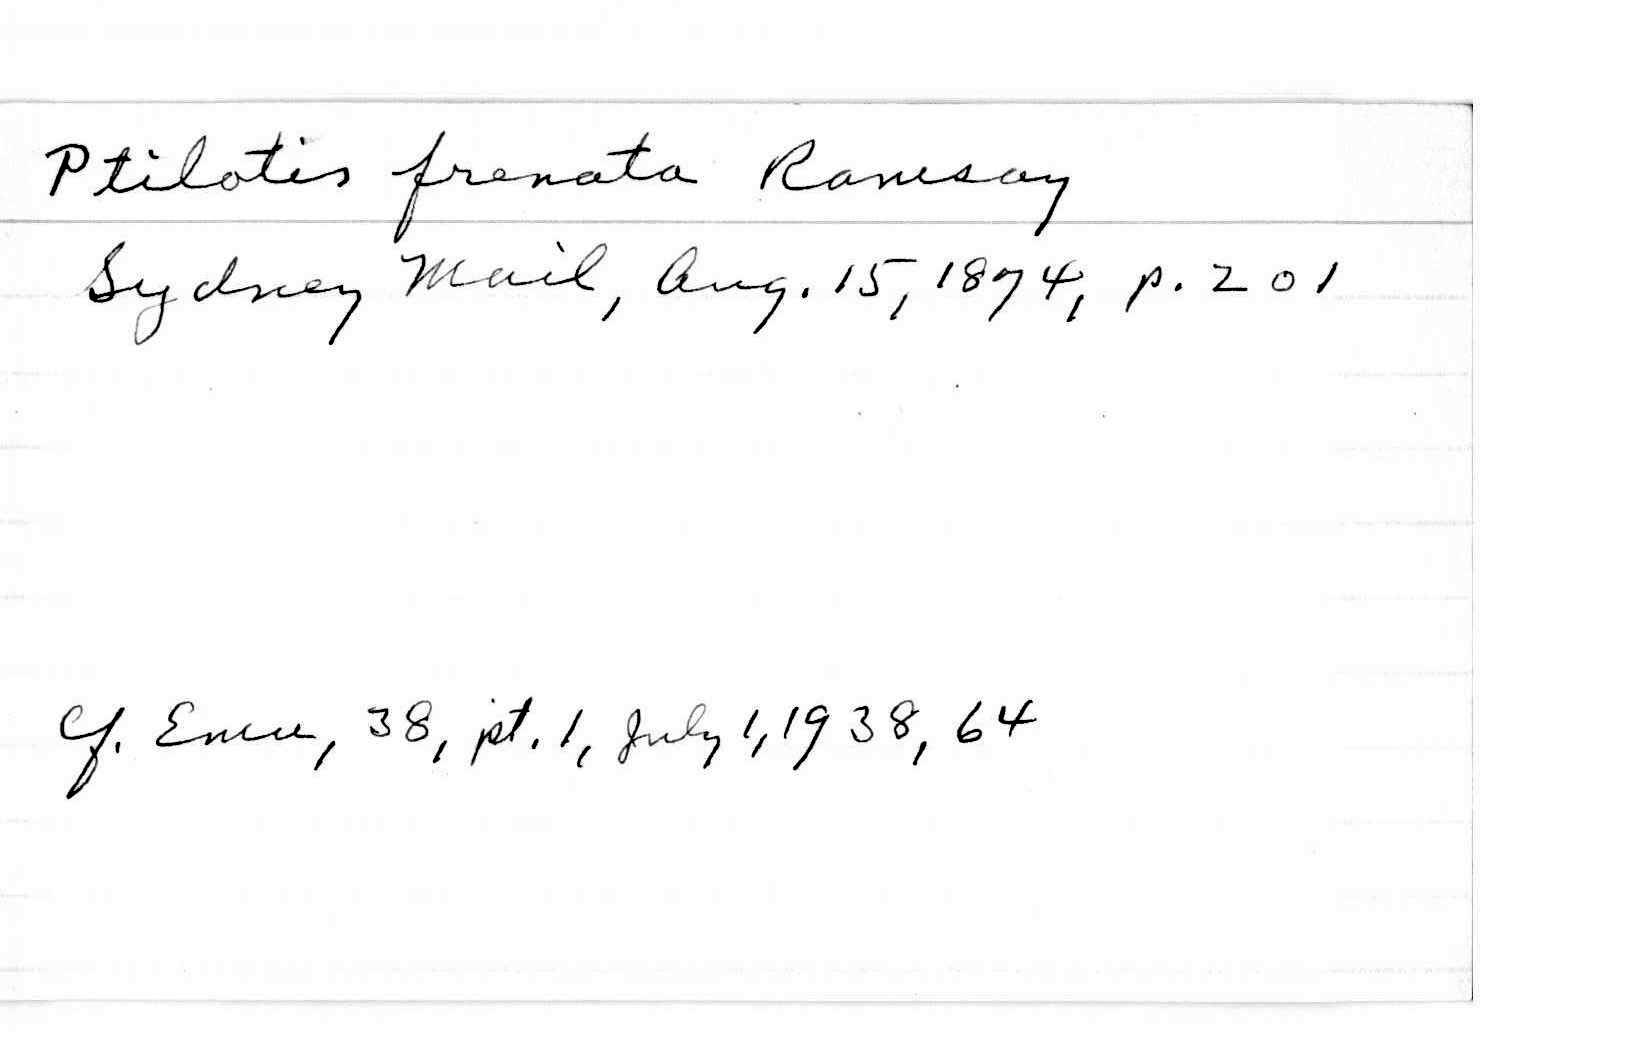 Ptilotis frenata Ramsay
Sydney Mail, Aug. 15, 1874, p. 201
Cf. Emu, 38, pt. 1, July 1, 1938, 64